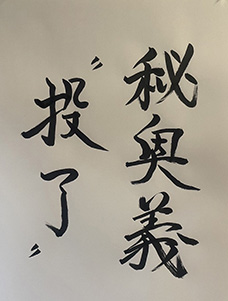 秘奥義
〝投了〟